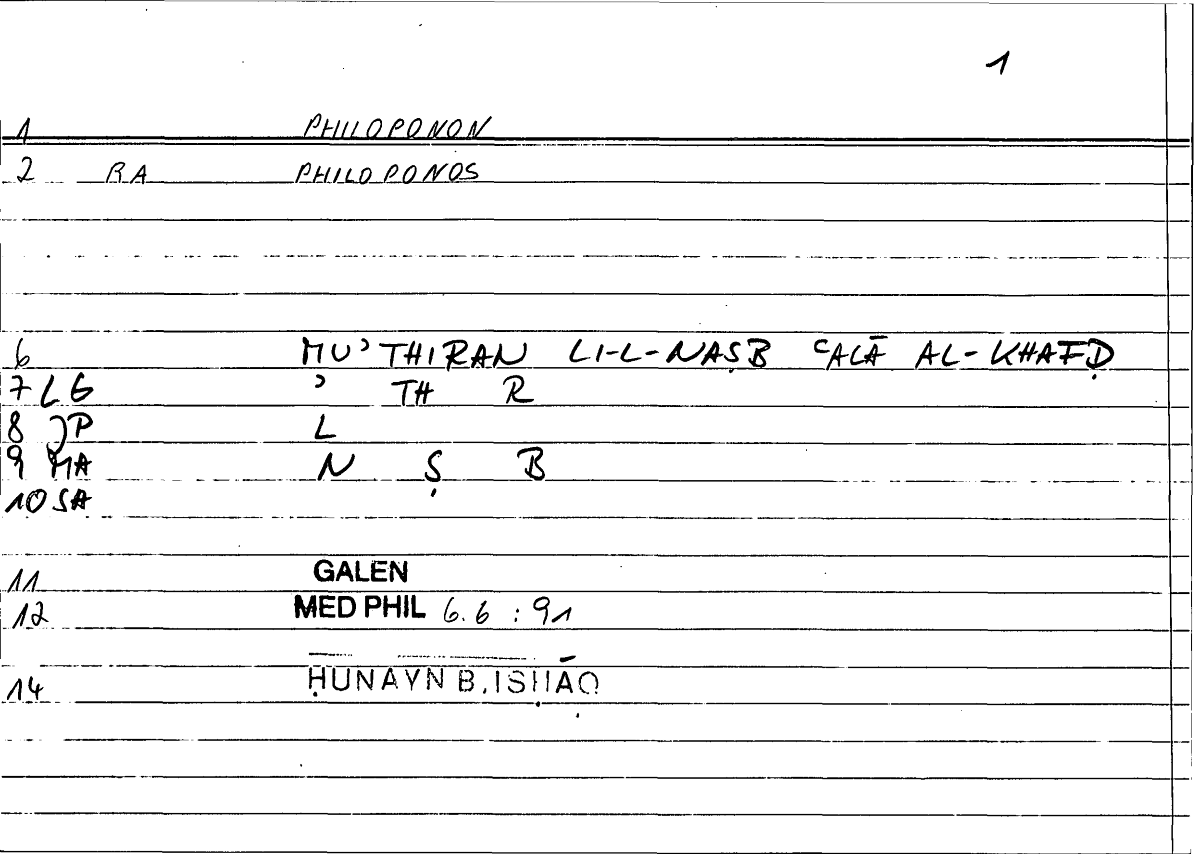 1
1 PHILOPONON
2 RA PHILOPONOS
6 MUʾTHIRAN LI-L-NAṢB ʿALĀ AL-KHAFḌ
7 LG ʾ TH R
8 JP L
9 MA N Ṣ B
10 SA
11 GALEN
12 MED PHIL 6.6 : 91
14 ḤUNAYN B. ISḤĀQ